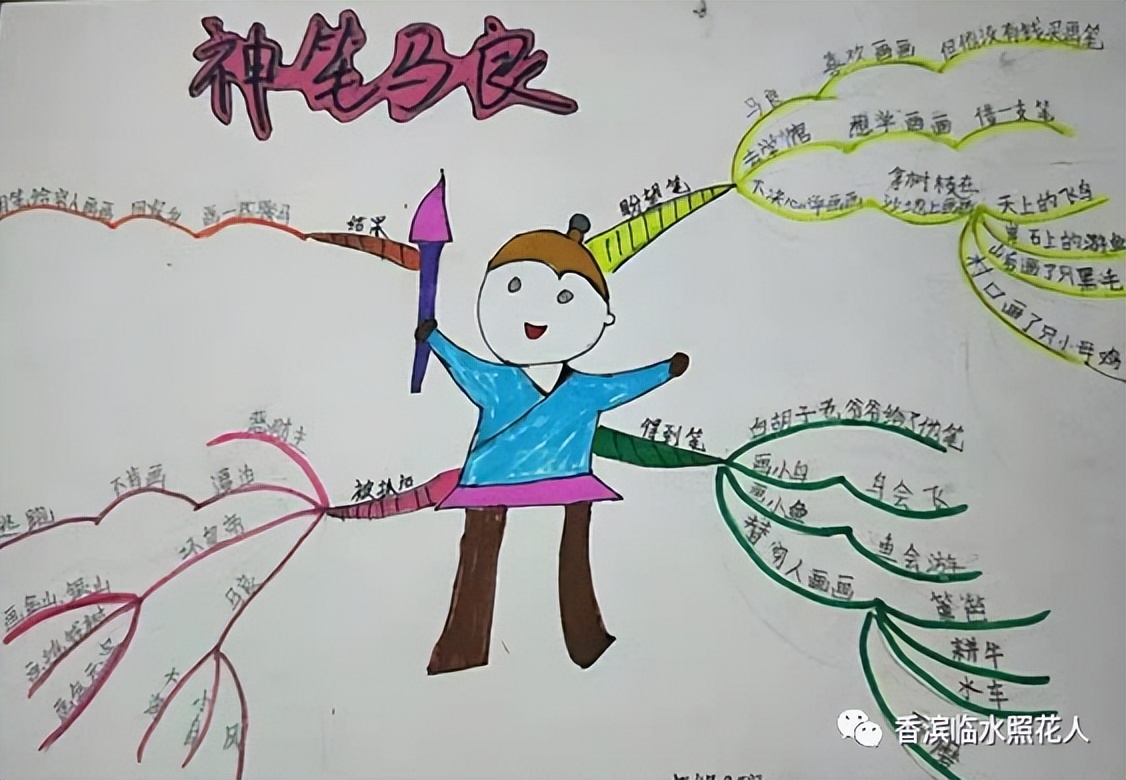 神笔马良
盼望笔
马良
喜欢画画
但他没有钱买画笔
去学馆
想学画画
借一支笔
下决心学画画
拿树枝在
沙地上画画
天上的飞鸟
岸石上的游鱼
山后画了只黑毛
村口画了只小母鸡
得到笔
白胡子老爷爷给了他笔
画小鸟
鸟会飞
画小鱼
鱼会游
替穷人画画
耕牛
水车
被抓后
恶财主
逼迫
不肯画
逃跑
坏皇帝
画金山、银山
马良
大
风
结果
回家乡
画一匹骏马
香滨临水照花人